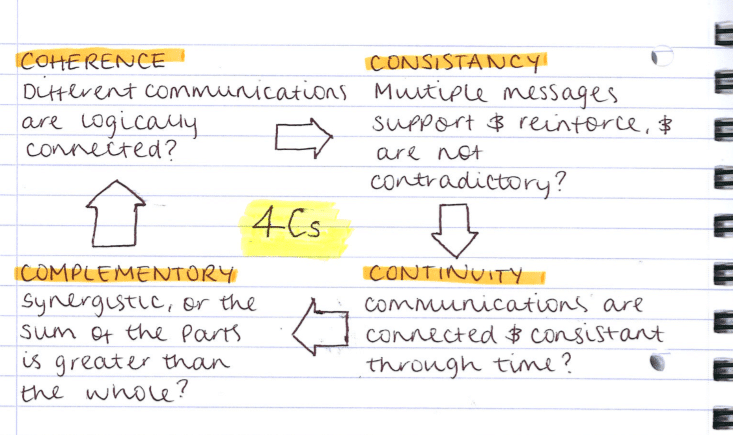 COHERENCE
Different communications
are logically
connected?
CONSISTANCY
Multiple messages
support & reinforce, &
are not
contradictory?
4Cs
COMPLEMENTORY
Synergistic, or the
sum of the parts
is greater than
the whole?
CONTINUITY
communications are
connected & consistant
through time?